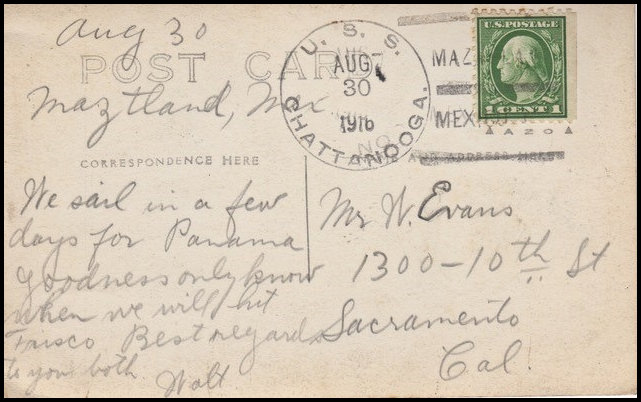 Aug 30
POST CARD
Maztland, Mex
U. S. S. CHATTANOOGA.
AUG
30
1916
MAZ
MEX
U.S. POSTAGE
1 CENT 1
AZO
CORRESPONDENCE HERE
ADDRESS HERE
We sail in a few
days for Panama
goodness only know
when we will hit
Frisco. Best regards
to you both.
Walt
Mr W. Evans
1300-10th St
Sacramento
Cal.